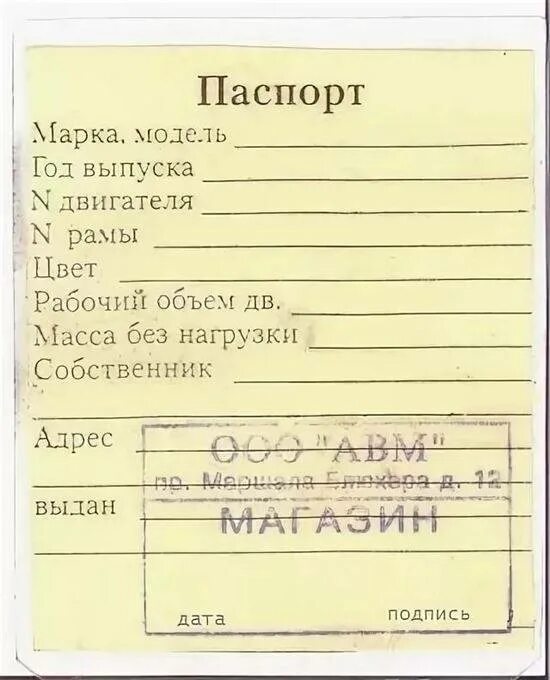 Паспорт
Марка, модель
Год выпуска
N двигателя
N рамы
Цвет
Рабочий объем дв.
Масса без нагрузки
Собственник
Адрес
ООО "АВМ"
пр. Маршала Блюхера д. 12
выдан
МАГАЗИН
дата подпись